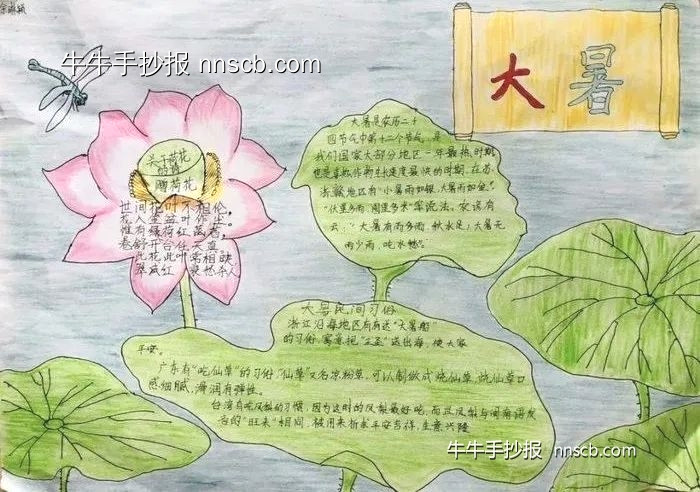 牛牛手抄报 nnscb.com
大暑
关于荷花
的诗
赠荷花
世间花叶不相伦,
花入金盆叶作尘。
惟有绿荷红菡萏,
卷舒开合任天真。
此花此叶常相映
翠减红衰愁杀人
大暑是农历二十
四节气中第十二个节气,是
我们国家大部分地区一年最热时期,
也是喜热作物生长速度最快的时期,在苏、
浙嘅地还有"小暑雨如银,大暑雨如金。"
"伏里多雨,囤里多米"等说法。农谚有
云:"大暑有雨多雨,秋水足;大暑无
雨少雨,吃水愁"。
大暑民间习俗
浙江沿海地区有有送"大暑船"
的习俗,寓意把"五圣"送出海,使大家
平安。
广东有"吃仙草"的习俗,仙草又名凉粉草,可以制做成烧仙草,烧仙草口
感细腻,滑润有弹性。
台湾有吃凤梨的习惯,因为这时的凤梨最好吃,而且凤梨与闽南语发
名的"旺来"相同,被用来祈求平安吉祥,生意兴隆
牛牛手抄报 nnscb.com